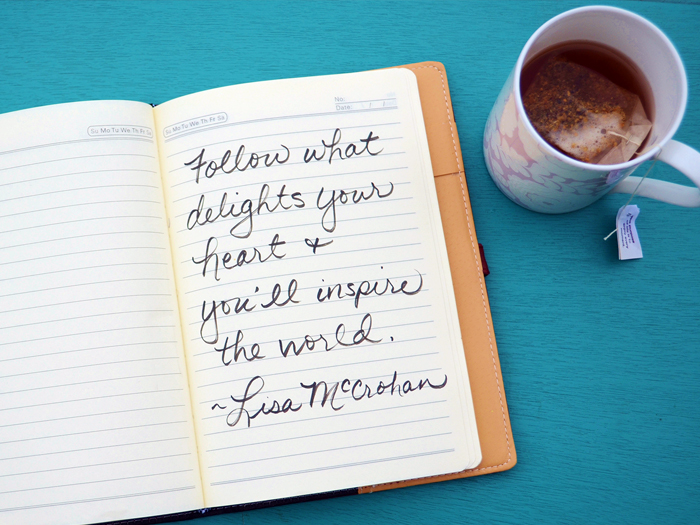 Su Mo Tu We Th Fr Sa
Su Mo Tu We Th Fr Sa
No:
Date:
Follow what
delights your
heart &
you'll inspire
the world.
~Lisa McCrohan